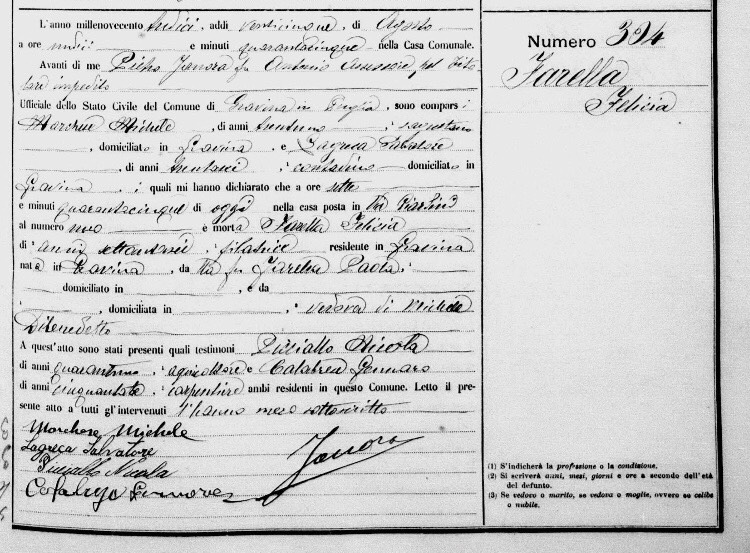 L'anno millenovecento tredici, addi venticinque di Agosto
a ore undici e minuti quarantacinque nella Casa Comunale.
Avanti di me Pietro Janora fu Antonio Assessore pel Tito-
lare impedito
Ufficiale dello Stato Civile del Comune di Gravina in Puglia, sono comparsi
Marchese Michele, di anni trentuno,
, domiciliato in Gravina, e Lagreca Salvatore
, di anni, contadino domiciliato in
Gravina, i quali mi hanno dichiarato che a ore sette
e minuti quarantacinque di oggi nella casa posta in Via
al numero uno è morta Farella Felicia
di anni settantasei, filatrice residente in Gravina
nata in Gravina, da fu
domiciliato in, e da
, domiciliata in, vedova di Michele
DiBenedetto
A quest'atto sono stati presenti quali testimoni Nicola
di anni quarantuno, agricoltore e Calabrese Gennaro
di anni, carpentiere ambi residenti in questo Comune. Letto il pre-
sente atto a tutti gl'intervenuti l'hanno meco sottoscritto
Marchese Michele
Lagreca Salvatore
Nicola
Janora
Numero 394
Farella
Felicia
(1) S'indicherà la professione o la condizione.
(2) Si scriverà anni, mesi, giorni e ore a secondo dell'età
del defunto.
(3) Se vedovo o marito, se vedova o moglie, ovvero se celibe
o nubile.